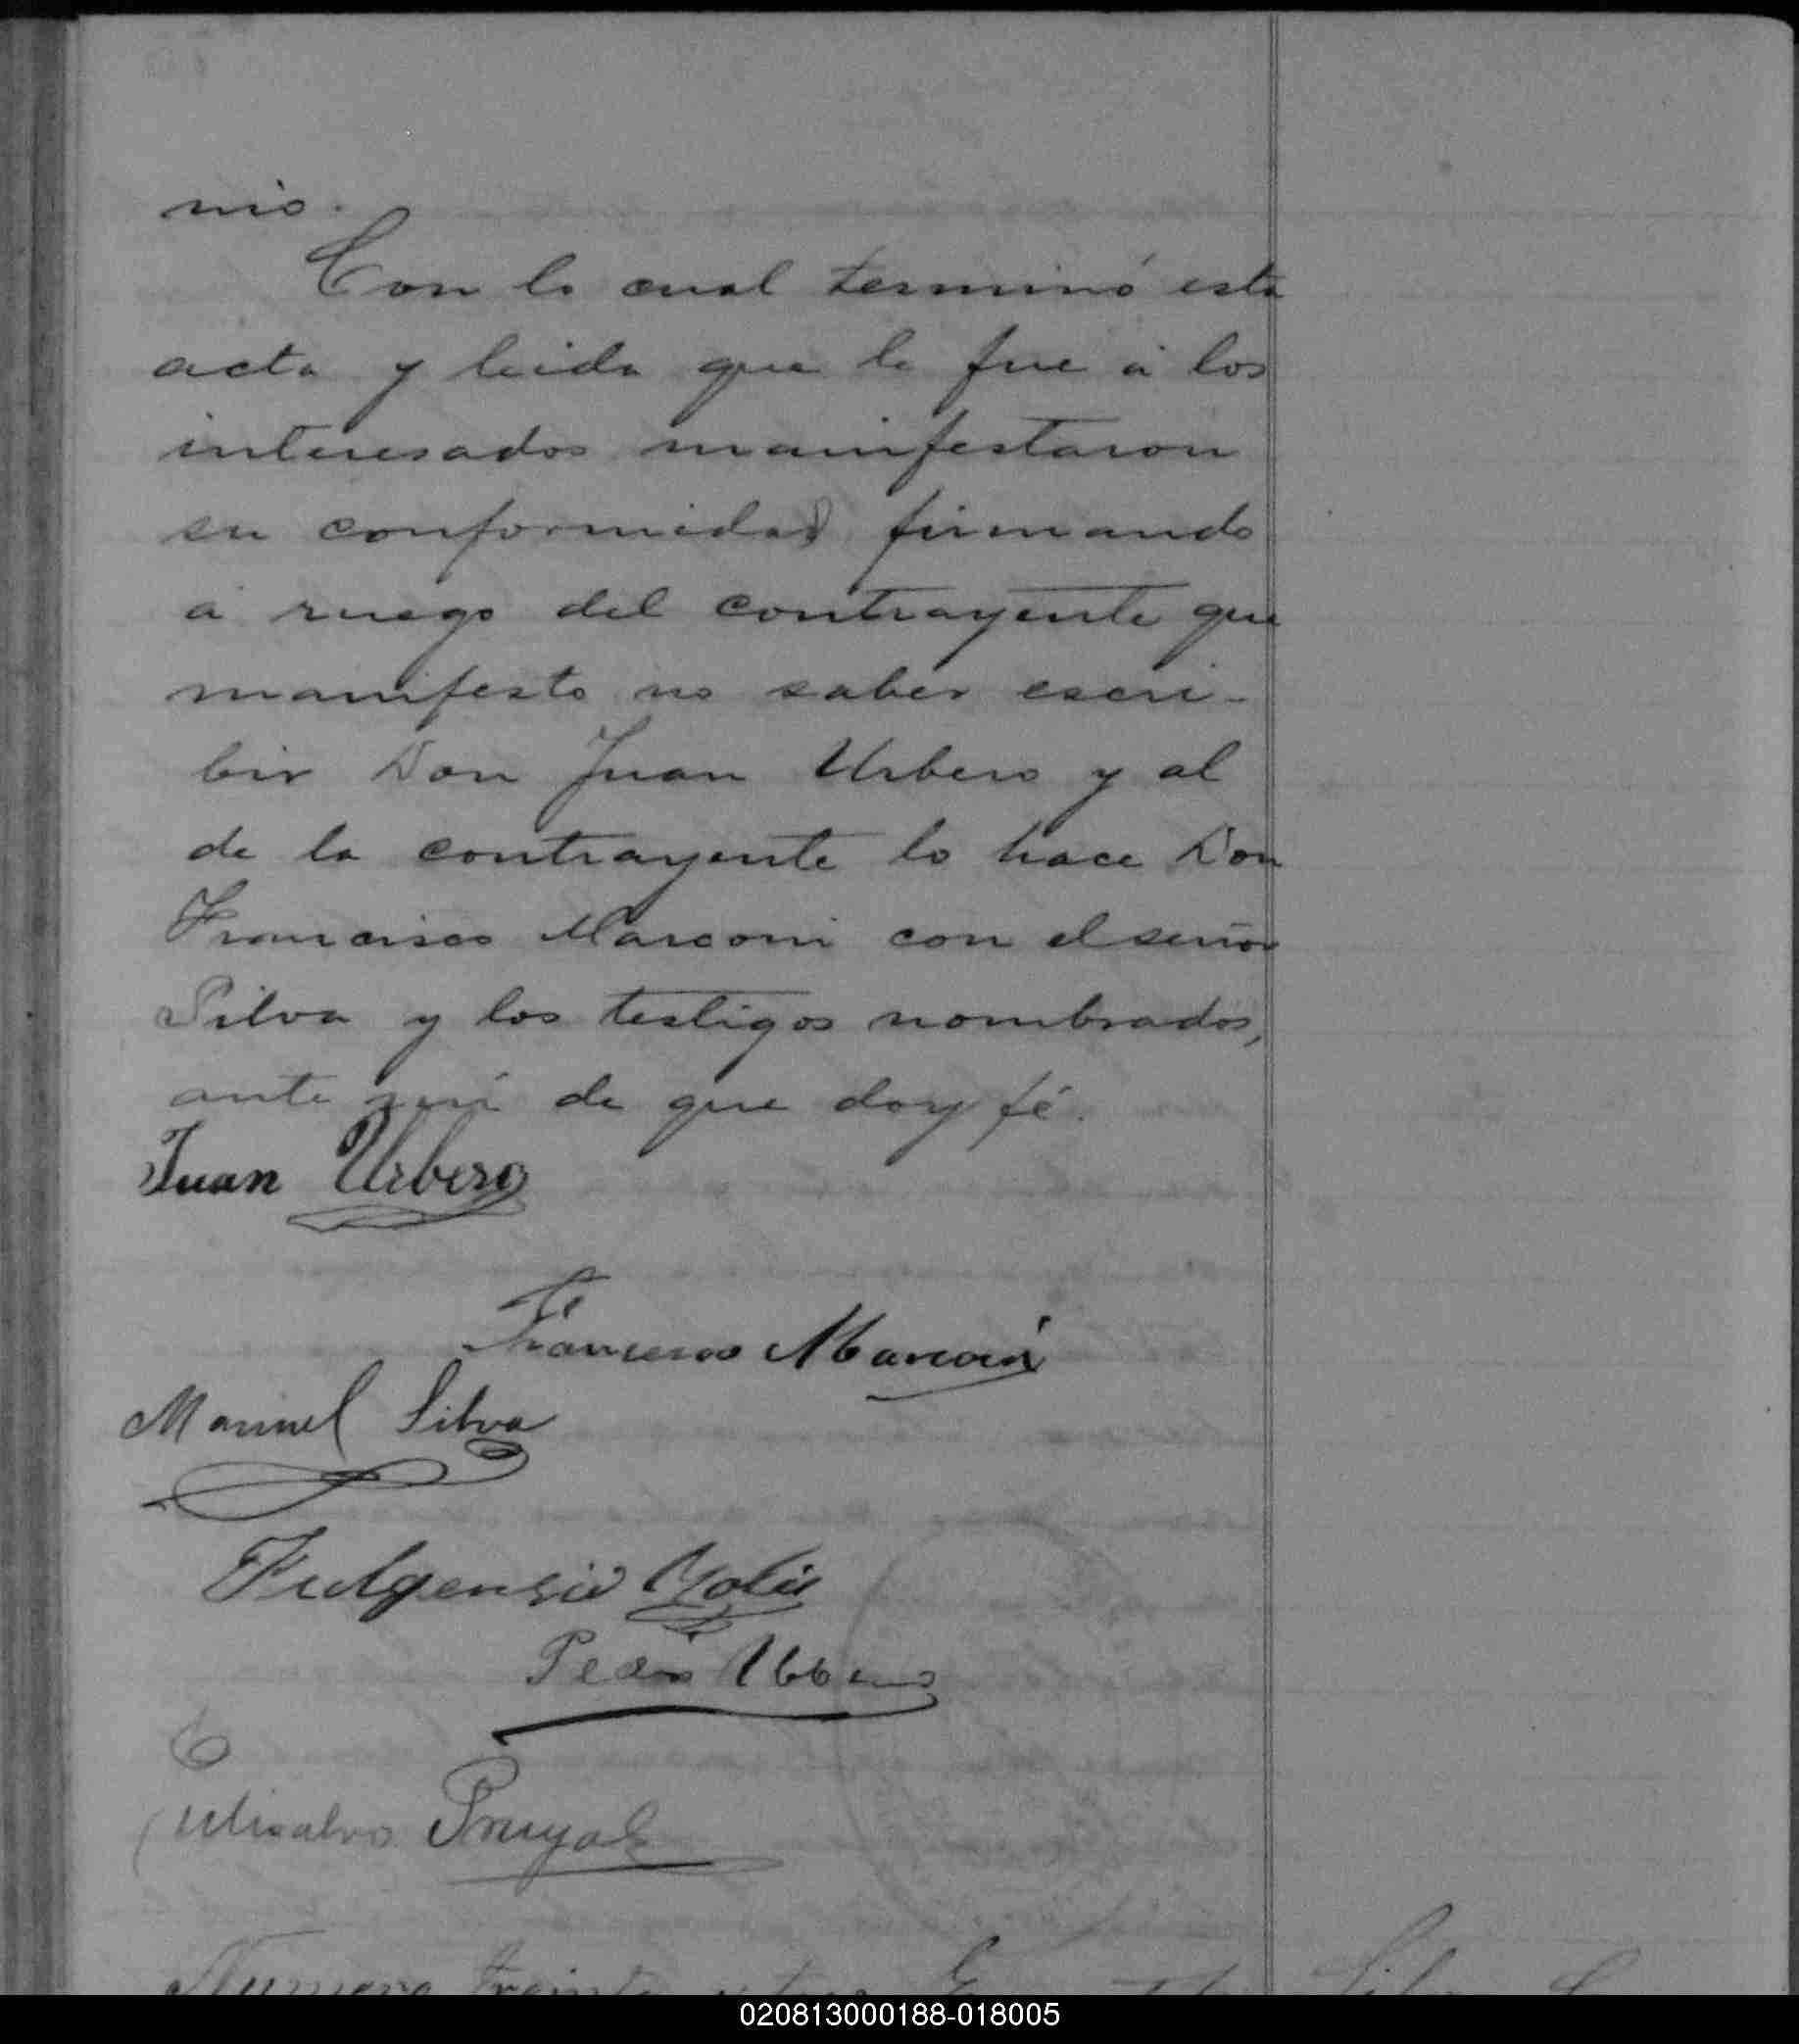 nio.
Con lo cual terminó esta
acta y leida que le fue á los
interesados manifestaron
su conformidad firmando
á ruego del contrayente que
manifesto no saber escri-
bir Don Juan Urbero y al
de la contrayente lo hace Don
Francisco Marconi con el señor
Silva y los testigos nombrados,
ante mi de que doy fé.
Juan Urbero
Francesco Marconi
Manuel Silva
Fulgensio
Pedro
Numero treinta y tres
020813000188-018005